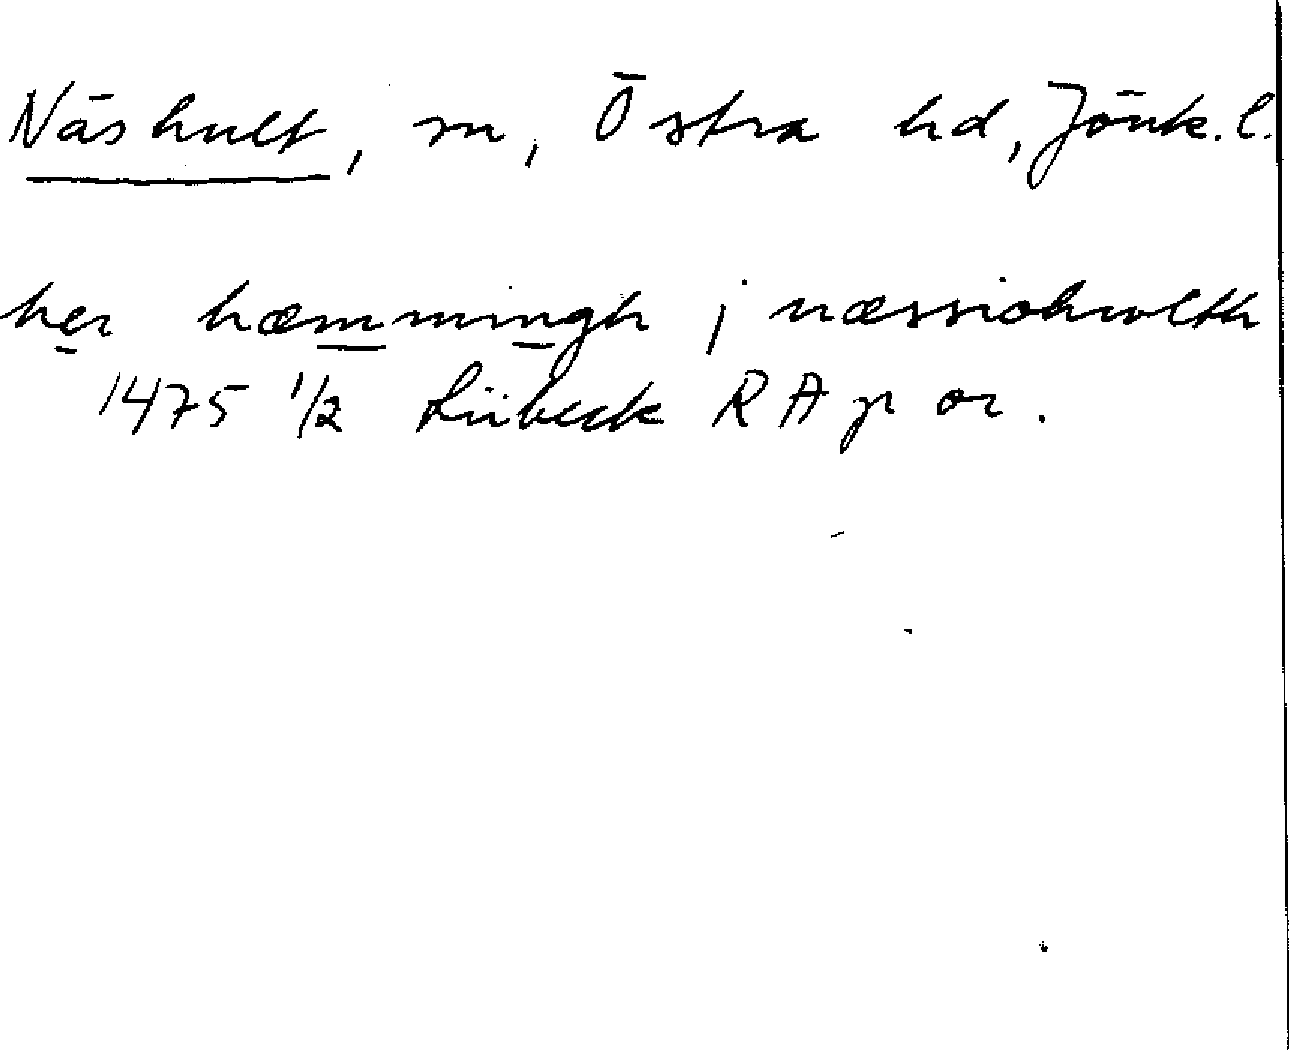 Näshult, sn, Östra hd, Jönk. l.
her hæmmingh j næssiohwlth
1475 1/2 Lübeck RA p or.